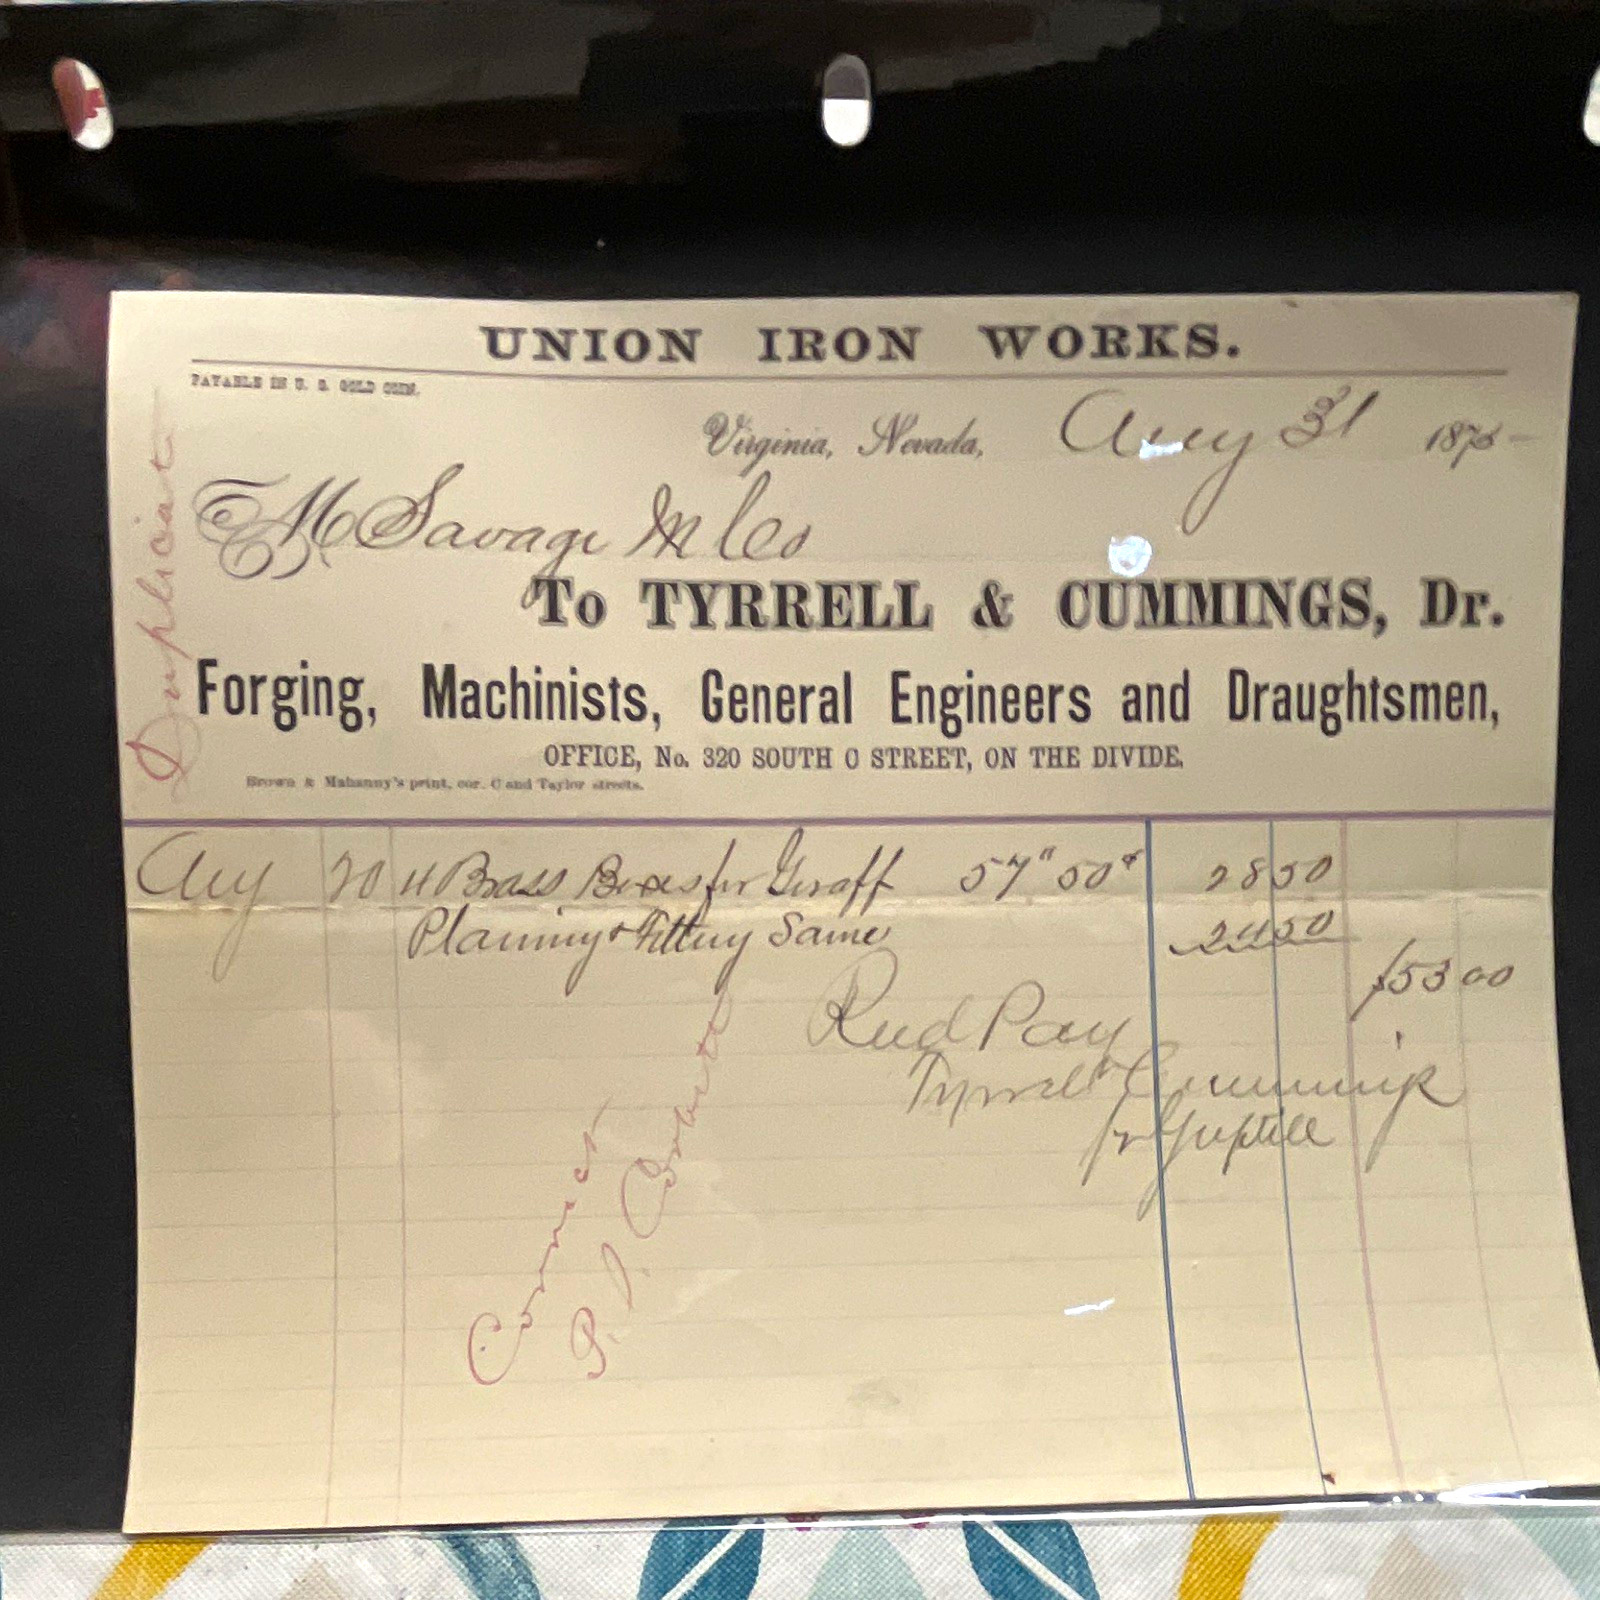 UNION IRON WORKS.
PAYABLE IN U. S. GOLD COIN.
Virginia, Nevada, Aug 31 187
M Savage M Co
To TYRRELL & CUMMINGS, Dr.
Forging, Machinists, General Engineers and Draughtsmen,
OFFICE, No. 320 SOUTH C STREET, ON THE DIVIDE.
Brown & Mahanny's print, cor. C and Taylor streets.
Duplicat
Aug 20 4 Brass Boxes for Giraff 57" 50¢ 28 50
Planing & Fitting Same 24 50
$53 00
Recd Pay
Tyrrell & Cummings
for
Correct
P. J. Corbett